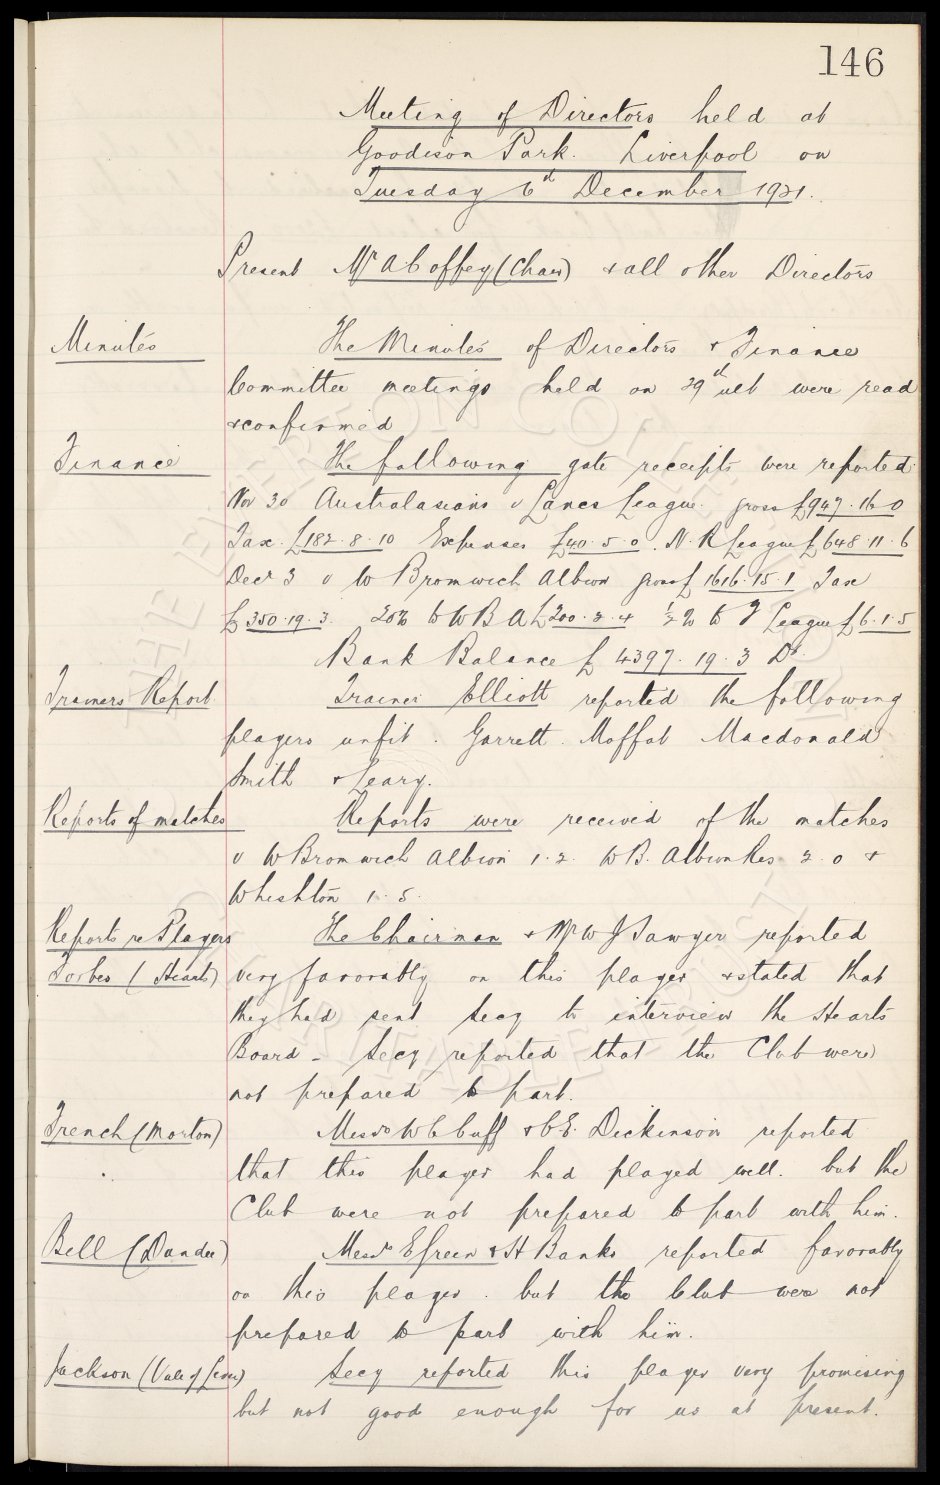 146
Meeting of Directors held at
Goodison Park. Liverpool on
Tuesday 6th December 1921.
Present Mr A Coffey (Chair) & all other Directors
Minutes The Minutes of Directors & Finance
Committee meetings held on 29th ult were read
& confirmed
Finance The following gate receipts were reported
Nov 30 Australasians v Lancs League. gross £947.16.0
Tax £182.8.10 Expenses £40.5.0. N.R League £648.11.6
Decr 3 v W Bromwich Albion gross £1616.15.1 Tax
£350.19.3. 20% to W B A £200.2.4 ½% to F League £6.1.5
Bank Balance £4397.19.3 Dr
Trainers Report Trainer Elliott reported the following
players unfit. Garrett. Moffat Macdonald
Smith & Leary.
Reports of matches Reports were received of the matches
v W Bromwich Albion 1.2. W B. Albion Res 2.0 &
Whiston 1.5.
Reports re Players The Chairman & Mr W J Sawyer reported
Forbes (Hearts) very favorably on this player & stated that
they had sent Secy to interview the Hearts
Board - Secy reported that the Club were
not prepared to part.
French (Morton) Messrs W C Cuff & C E. Dickinson reported
that this player had played well. but the
Club were not prepared to part with him.
Bell (Dundee) Messrs E Green & H Banks reported favorably
on this player. but the Club were not
prepared to part with him.
Jackson (Vale of Leven) Secy reported this player very promising
but not good enough for us at present.